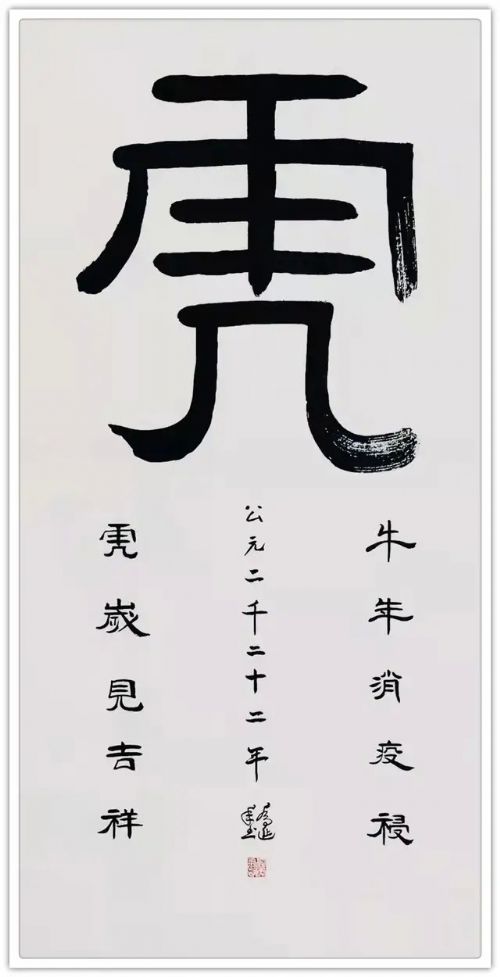 虎
牛年消疫祲
公元二千二十二年
虎歲見吉祥